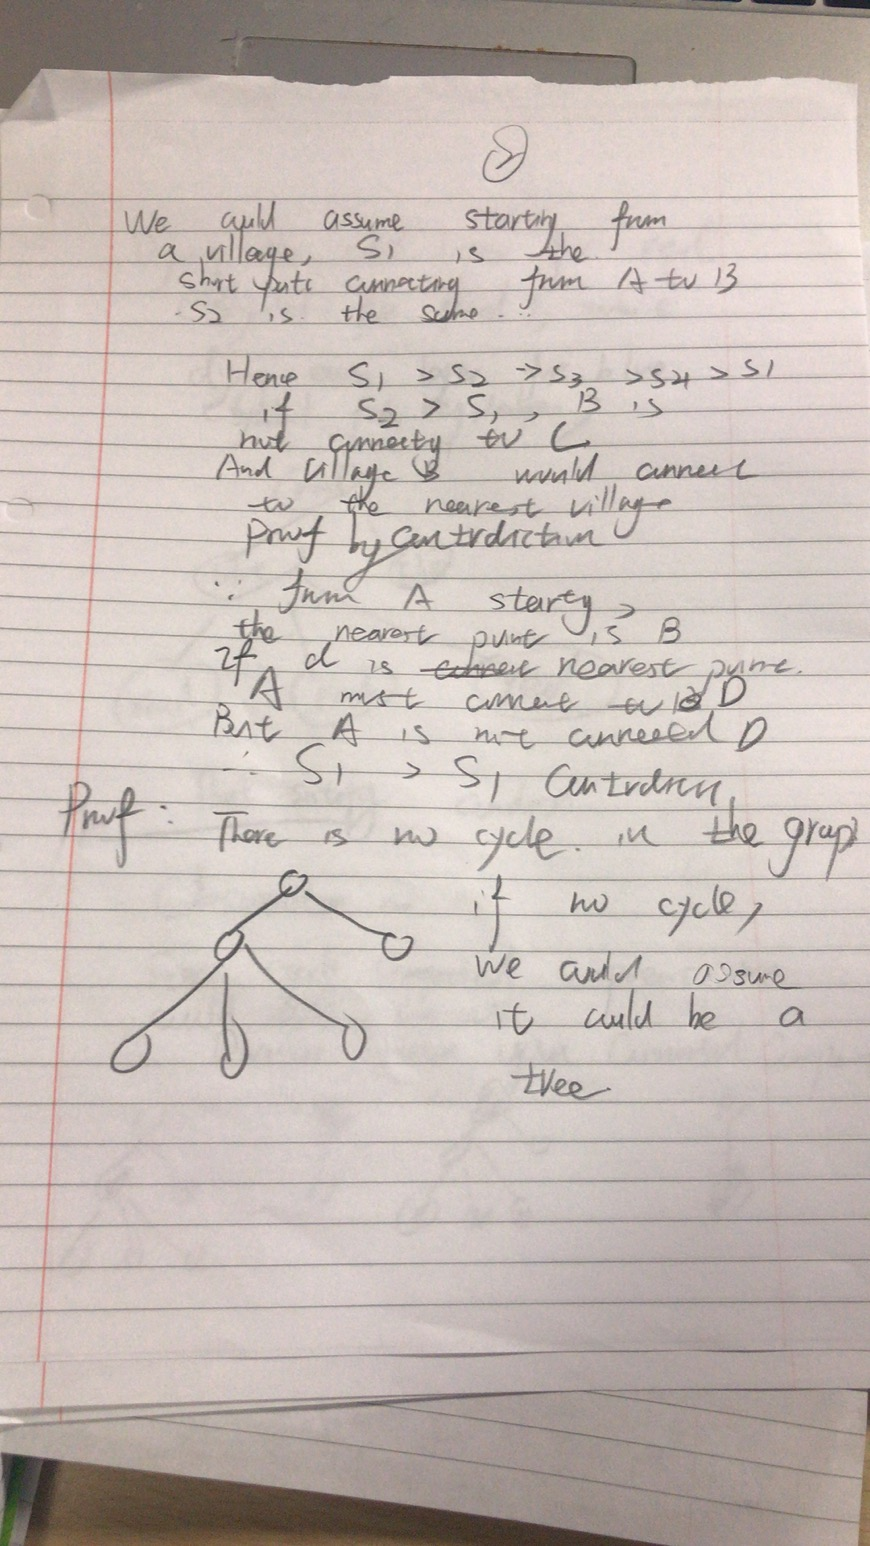 2
We could assume starting from
a village, S1 is the
short path connecting from A to B
S2 is the same.
Hence S1 > S2 > S3 > S4 > S1
if S2 > S1, B is
not connecty to C
And village B would connect
to the nearest village
Proof by Contrdiction
∵ from A starty,
the nearest point is B
If d is nearest point.
A must connect to D
But A is not connected D
∴ S1 > S1 Contrdicn
Proof: There is no cycle. in the grap
if no cycle,
we could assume
it could be a
tree.